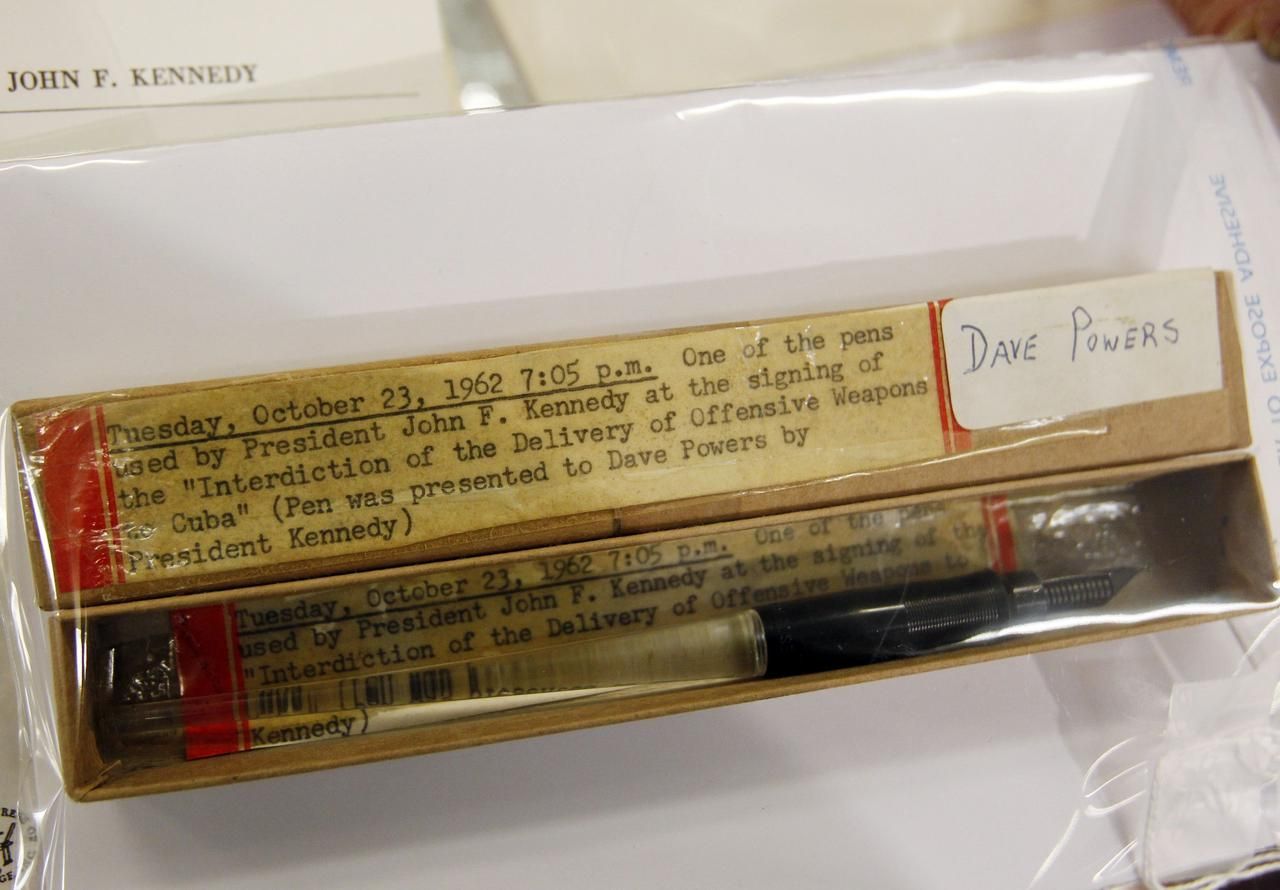 JOHN F. KENNEDY
Tuesday, October 23, 1962 7:05 p.m. One of the pens
used by President John F. Kennedy at the signing of
the "Interdiction of the Delivery of Offensive Weapons
to Cuba" (Pen was presented to Dave Powers by
President Kennedy)
DAVE POWERS
Tuesday, October 23, 1962 7:05 p.m. One of the pens
used by President John F. Kennedy at the signing of the
"Interdiction of the Delivery of Offensive Weapons to
Kennedy)
TO EXPOSE ADHESIVE